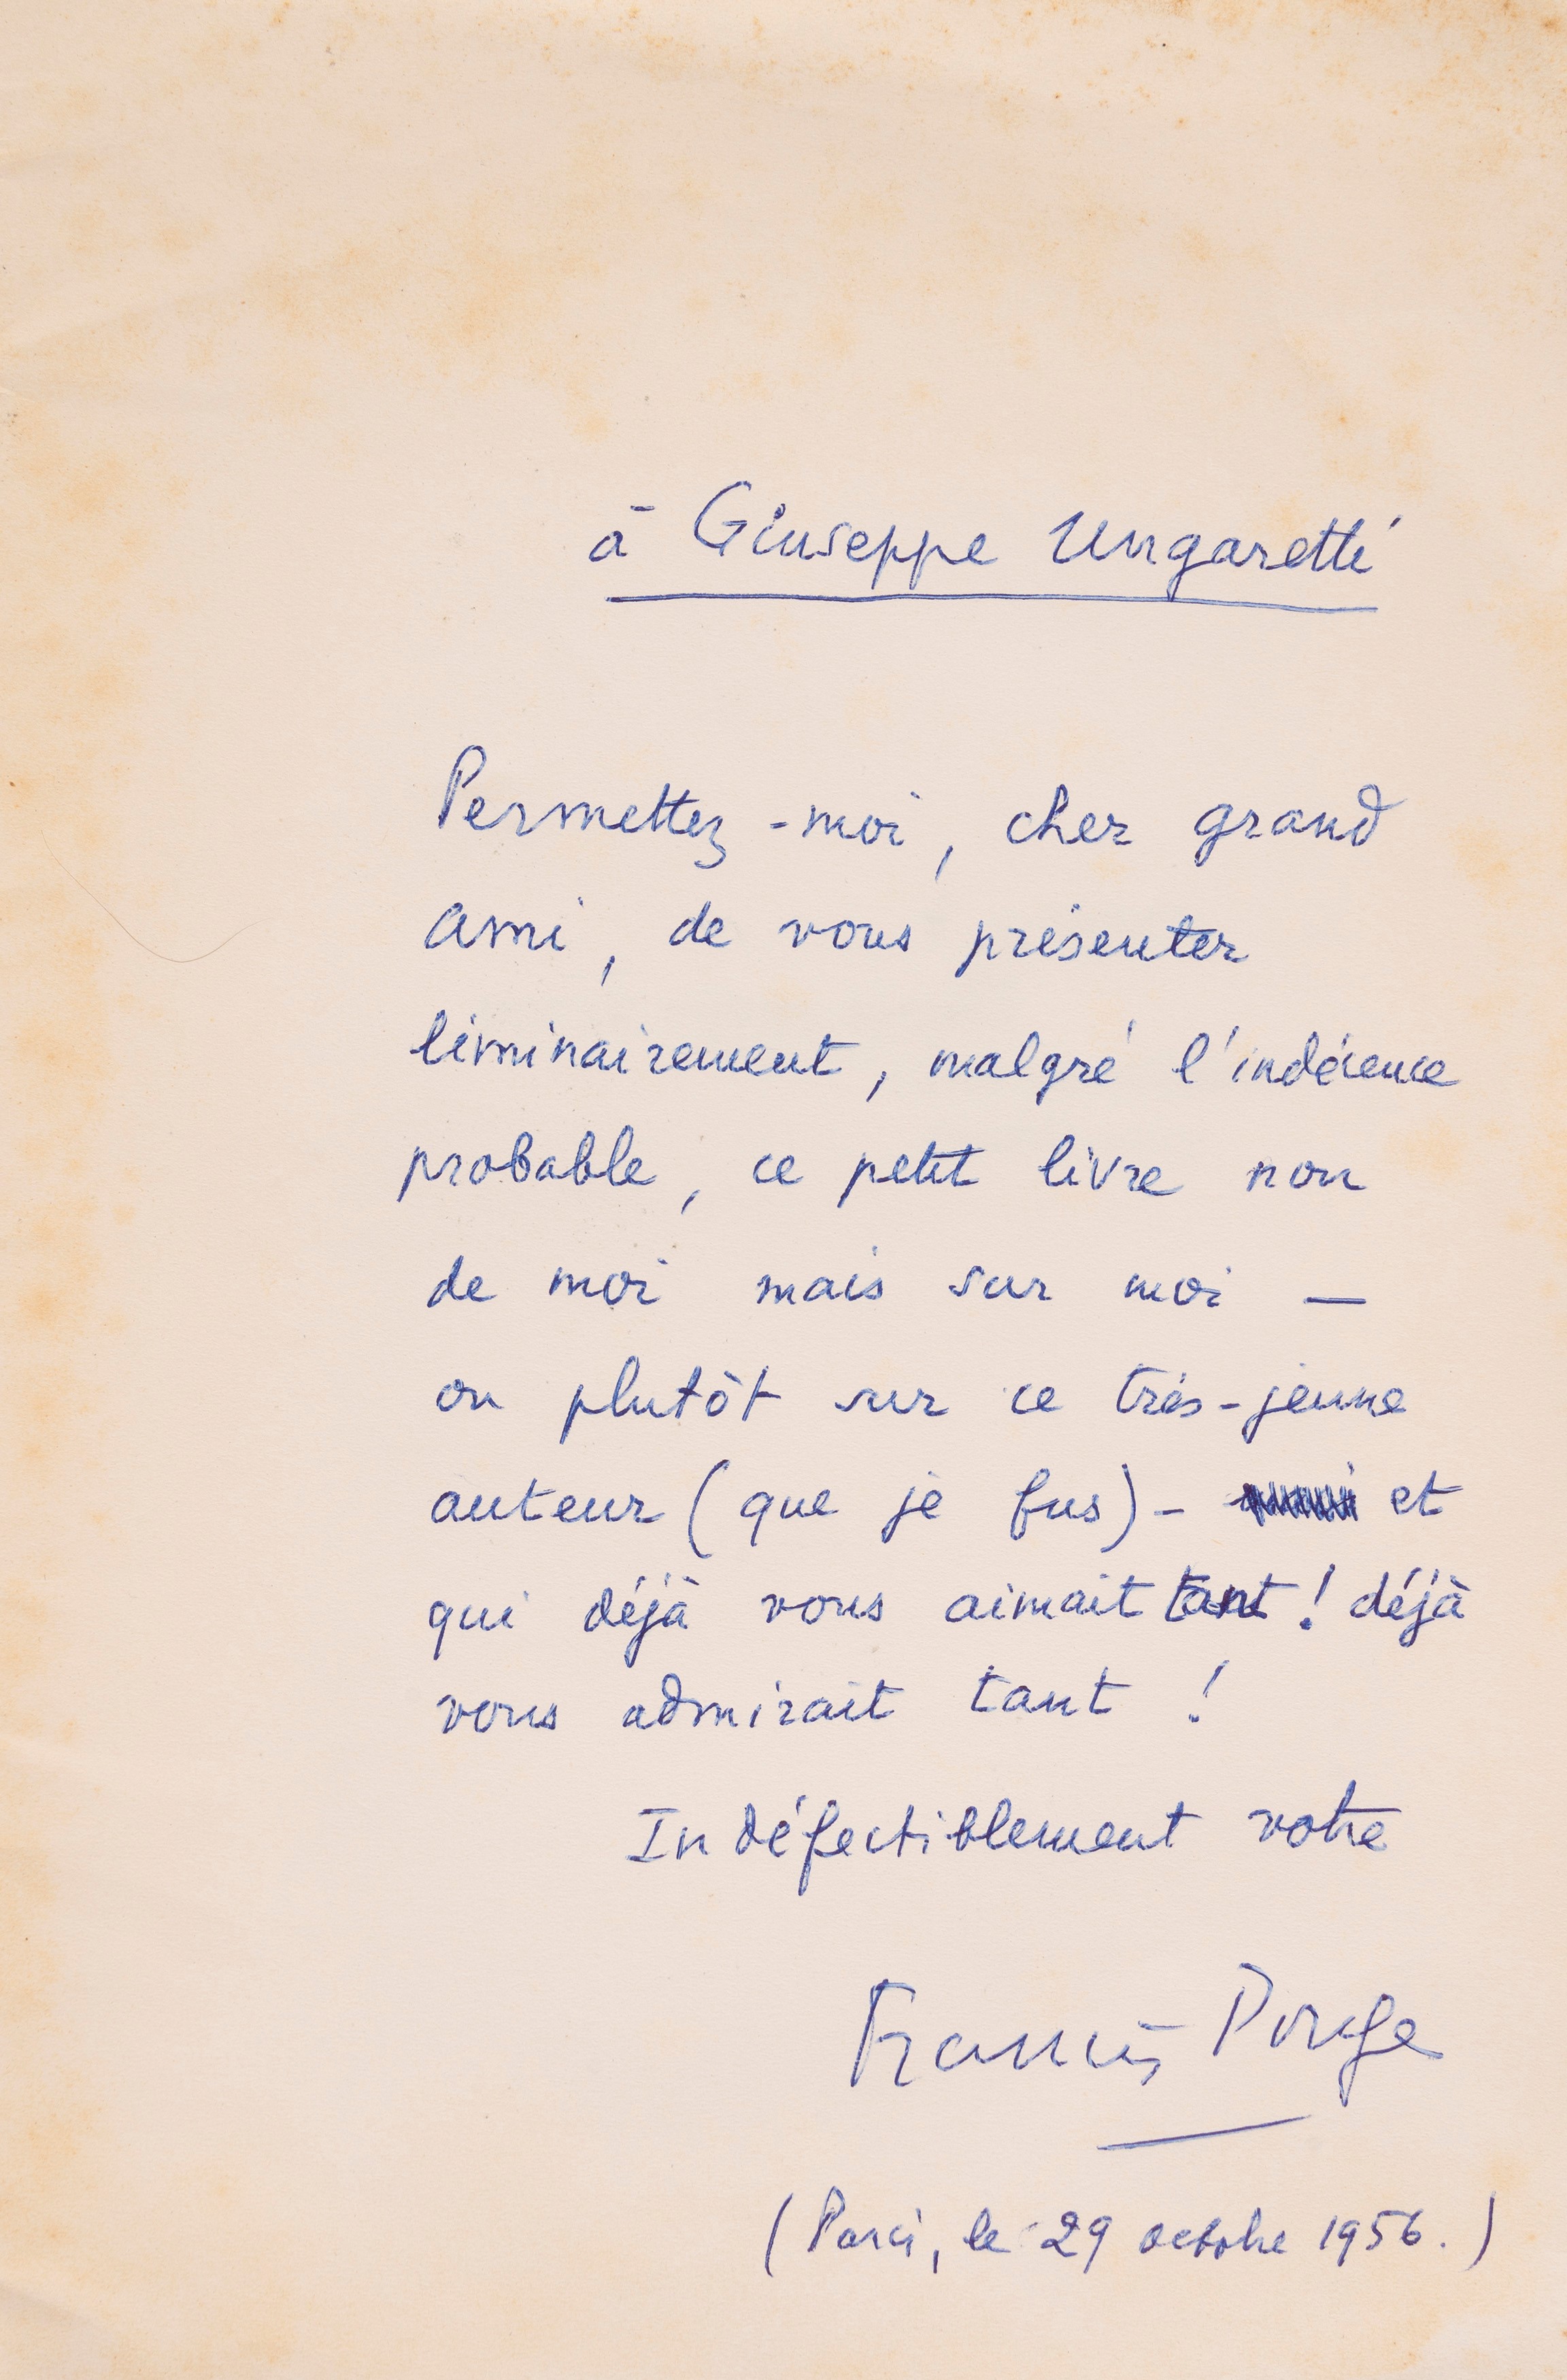 à Giuseppe Ungaretti
Permettez-moi, cher grand
ami, de vous présenter
liminairement, malgré l'indécence
probable, ce petit livre non
de moi mais sur moi —
ou plutôt sur ce très-jeune
auteur (que je fus) - et
qui déjà vous aimait tant ! déjà
vous admirait tant !
Indéfectiblement votre
Francis Ponge
(Paris, le 29 octobre 1956.)